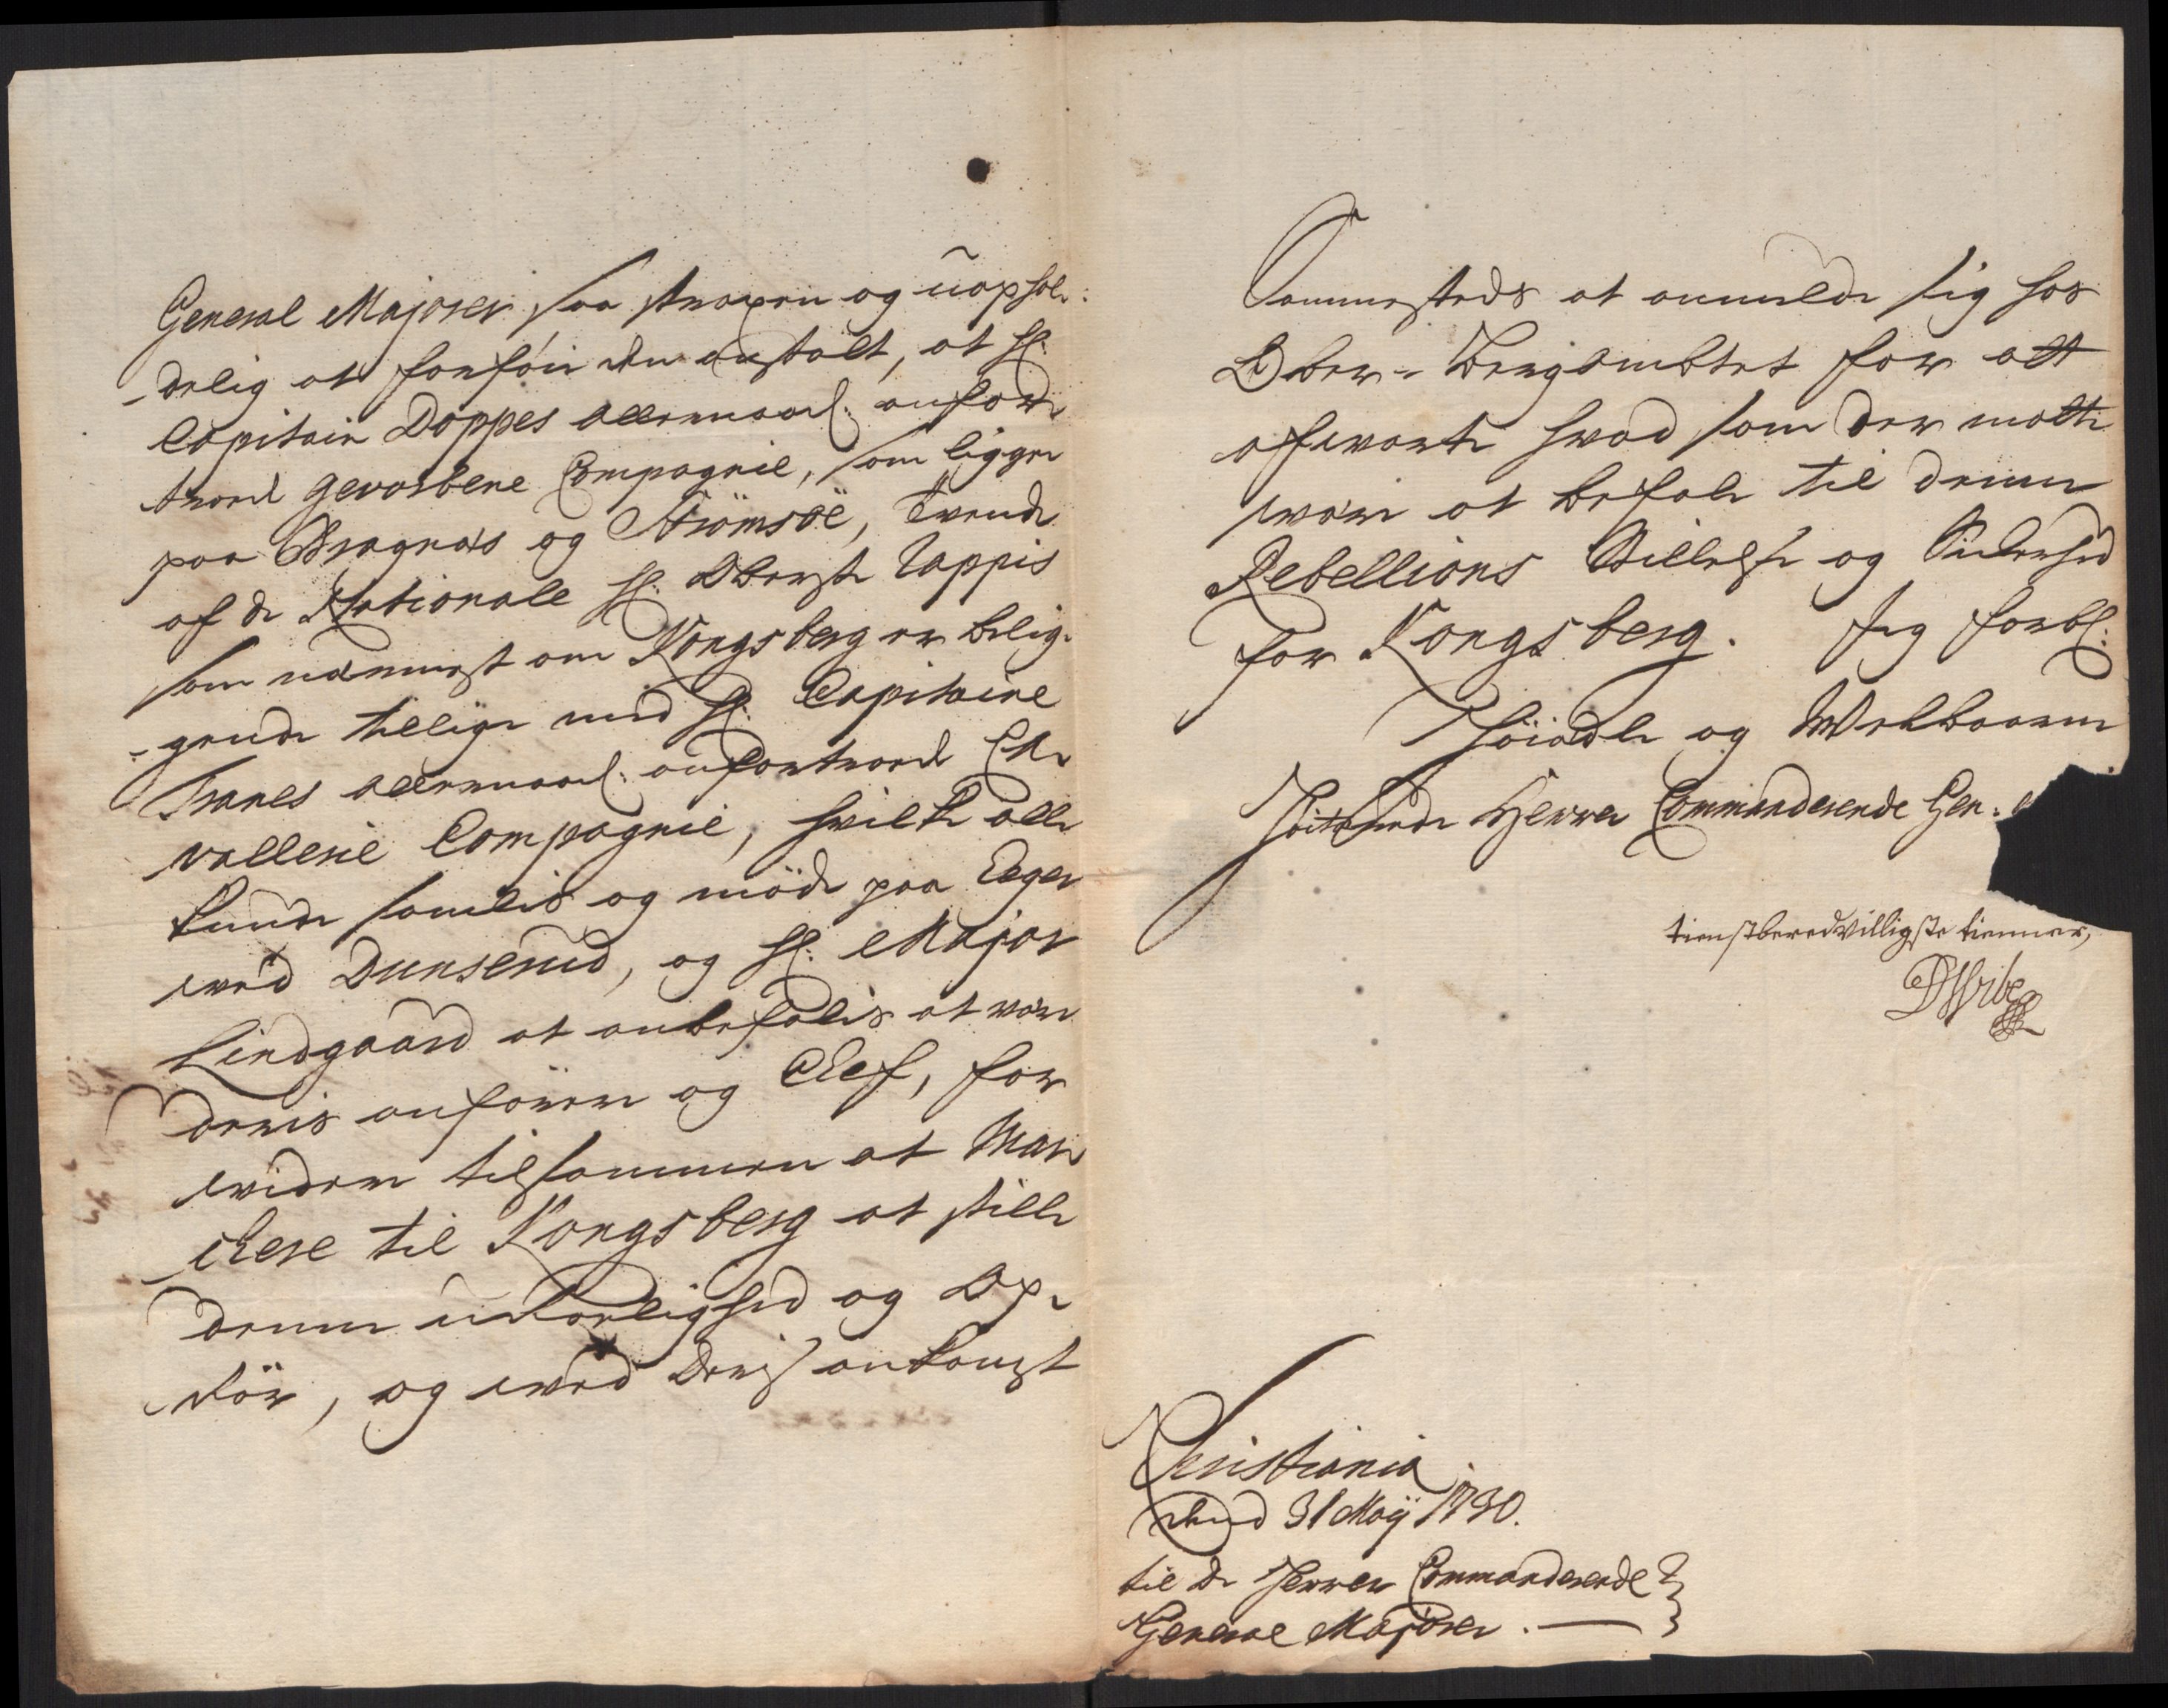 General Majorer saa straxen og uophol:
-delig at forføie den anstalt, at H:
Capitain Doppes allernaad: anfor
troed gevorbene Compagnie, som ligger
paa Bragnæs og Strömsöe, tvende
af de Nationale H: Oberste Tappis
som nærmest om Kongsberg er belig-
-gende tillige med H: Capitaine
Tranes allernaad: anfortroed Ca
vallerie Compagnie, hvilke alle
kunde samles og møde paa Eeger
ved Dunserud, og H: Major
Lindgaard at anbefales at være
deris anfører og Chef, for
videre tilsammen at Mar
chere til Kongsberg at stille
denne urolighed og Op-
rör, og ved deris ankomst
Sammesteds at anmelde sig hos
Ober-Bergambtet for alt
afvarte hvad som der maatte
være at befale til denne
Rebellions Stillelse og Sickerhed
for Kongsberg. Jeg forbl:
Høiædle og Velbaarne
Høistærede Herrer Commanderende Gen:
tienstberedvilligste tienner,
DVibe
Christiania
dend 31 Maij 1730.
til de Herrer Commanderende
General Majorer.